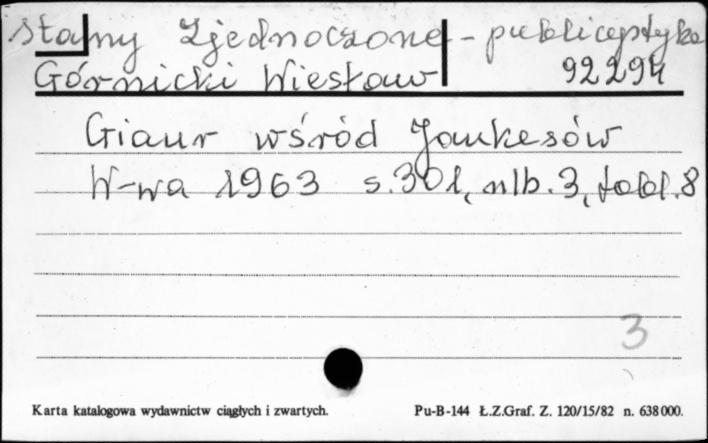 Stany Zjednoczone - publicystyka
Górnicki Wiesław 92294
Giaur wśród Jankesów
W-wa 1963 s.301, nlb. 3, tabl. 8
3
Karta katalogowa wydawnictw ciągłych i zwartych. Pu-B-144 Ł.Z.Graf. Z. 120/15/82 n. 638000.